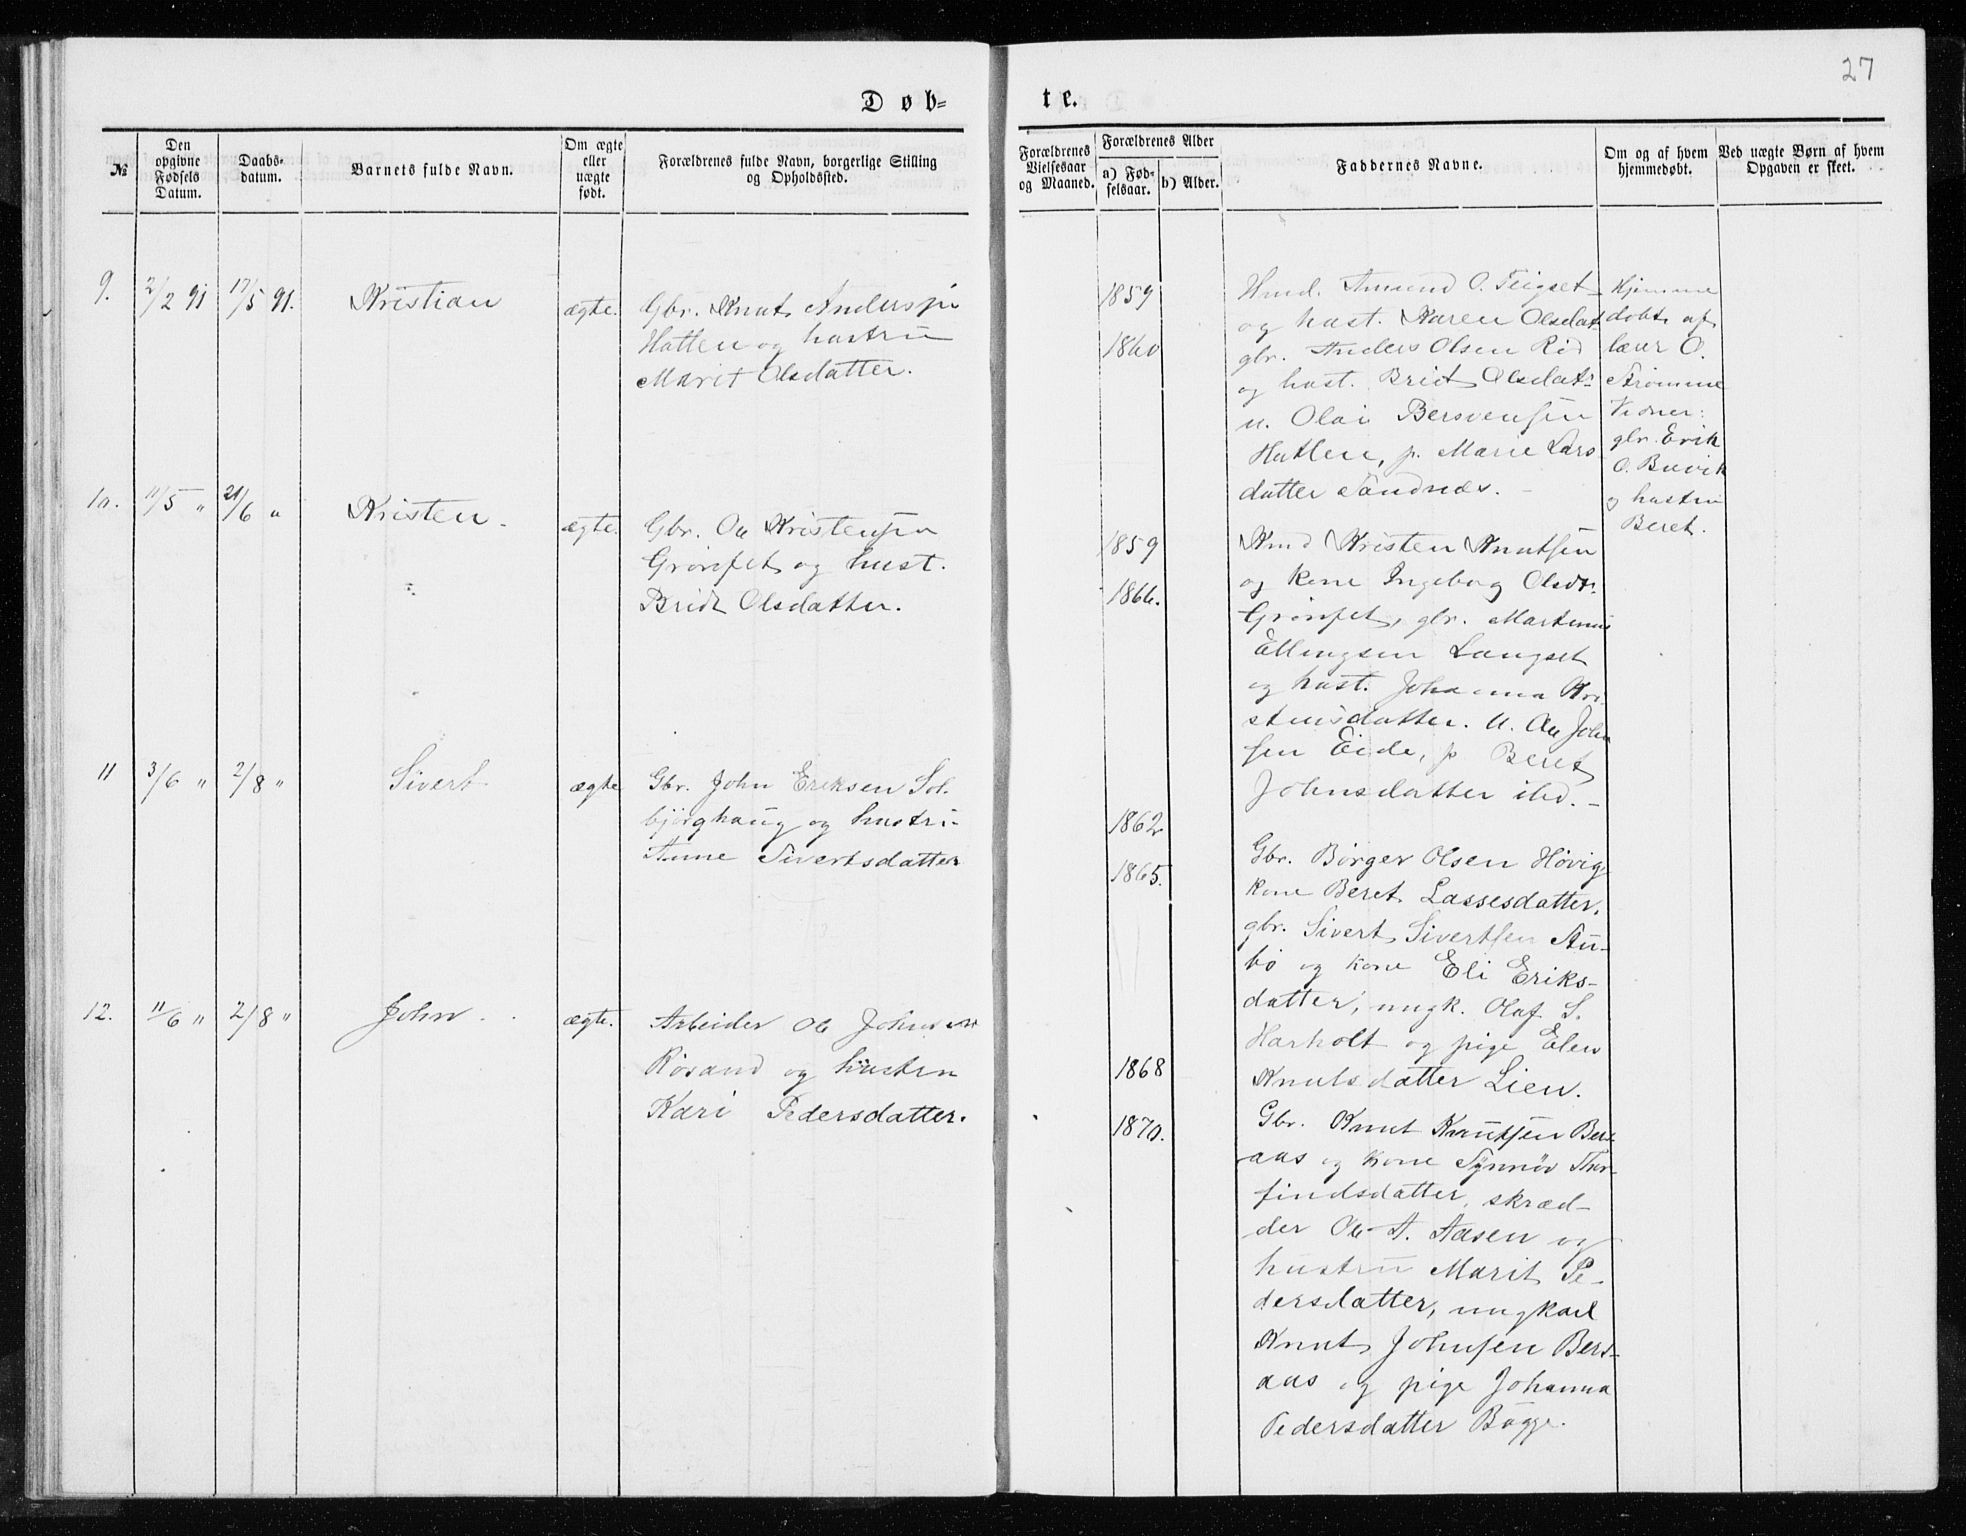 27
Døb-
te.
№
Den opgivne Fødsels Datum.
Daabs-datum.
Barnets fulde Navn.
Om ægte eller uægte født.
Forældrenes fulde Navn, borgerlige Stilling og Opholdssted.
Forældrenes Vielsesaar og Maaned.
Forældrenes Alder
a) Fød-selsaar.
b) Alder.
Faddernes Navne.
Om og af hvem hjemmedøbt.
Ved uægte Børn af hvem Opgaven er skeet.
9. 2/2 91 17/5 91. Kristian ægte. Gbr. Knut Andersen
Hatlen og hustru
Marit Olsdatter.
1859
1860
Amund O. Teigset
og hust. Karen Olsdat
gbr. Anders Olsen Rød
og hust. Brit Olsdat:
u. Olai Bersvensen
Hatlen, p. Marie Lars
datter Sandnes. -
Hjemme
døbt af
lærer O.
Strømme
Vidner:
gbr. Erik
O. Buvik
og hustru
Beret.
10. 11/5 " 21/6 " Kristen. ægte. Gbr. Ole Kristensen
Grønset og hust.
Brit Olsdatter.
1859
1866.
Kristen Knutsen
og kone Ingeborg Olsdt.
Grønset, gbr. Martinus
Ellingsen Langset
og hust. Johanna Kri
stensdatter. U. Ole John
sen Eide, p Beret
Johnsdatter ibd. -
11 3/6 " 2/8 " Sivert. ægte Gbr. John Eriksen Sol
bjørghaug og hustru
Anne Sivertsdatter
1862
1865.
Gbr. Børger Olsen Høvig
kone Beret Lassesdatter.
gbr. Sivert Sivertsen Au-
bø og kone Eli Eriks-
datter, ungk. Olaf S.
Harholt og pige Elen
Knutsdatter Lien.
12. 11/6 " 2/8 " John. ægte. Arbeider Ole Johnsen
Røsand og hustru
Kari Pedersdatter.
1868
1870.
Gbr. Knut Knutsen Bers
aas og kone Synnøv Thor
findsdatter, skræd-
der Ole A. Aasen og
hustru Marit Pe-
dersdatter, ungkarl
Knut Johnsen Bers-
aas og pige Johanna
Pedersdatter Bugge.